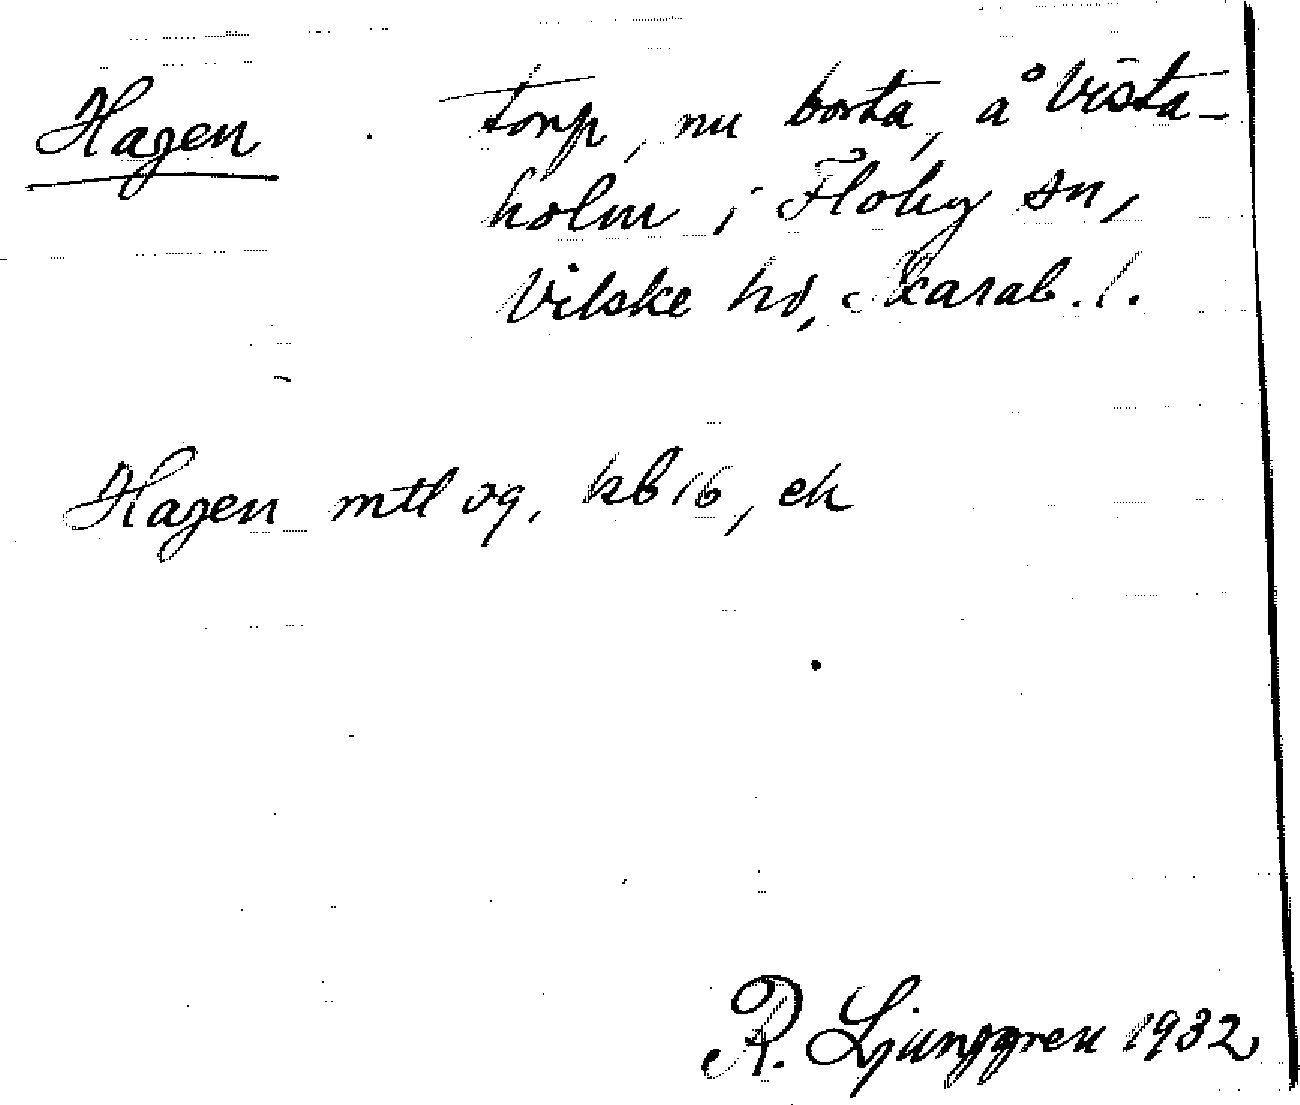 Hagen torp, nu borta, å Vista-
holm i Floby sn,
Vilske hd, Skarab. l.
Hagen mtl og, kb 16, ek
R. Ljunggren 1932